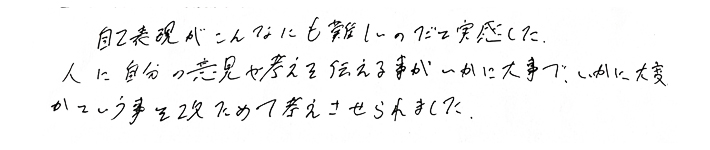 自己表現がこんなにも難しいのだと実感した.
人に自分の意見や考えを伝える事がいかに大事で、いかに大変
かという事を改ためて考えさせられました.